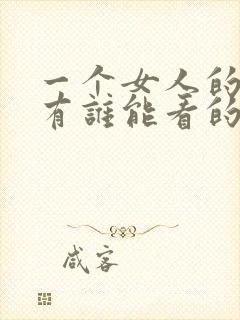 一个女人的
有誰能看的
咸客